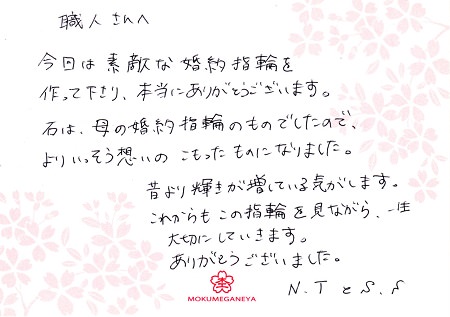 職人さんへ
今回は素敵な婚約指輪を
作って下さり、本当にありがとうございます。
石は、母の婚約指輪のものでしたので、
よりいっそう想いの こもったものになりました。
昔より輝きが増している気がします。
これからもこの指輪を見ながら、一生
大切にしていきます。
ありがとうございました。
N.TとS.S
MOKUMEGANEYA